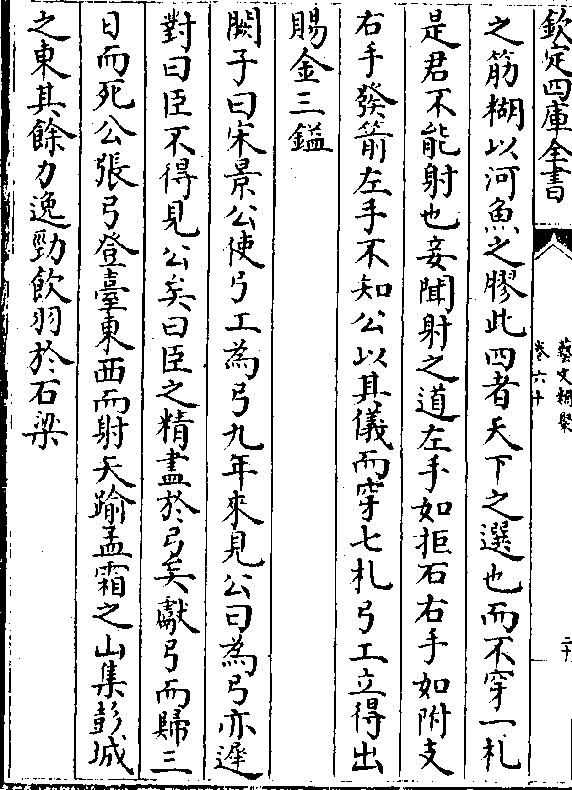 欽定四庫全書
藝文類聚
卷六十
之筋糊以河魚之膠此四者天下之選也而不穿一札
是君不能射也妾聞射之道左手如拒石右手如附支
右手發箭左手不知公以其儀而穿七札弓工立得出
賜金三鎰
闕子曰宋景公使弓工為弓九年來見公曰為弓亦遲
對曰臣不得見公矣曰臣之精盡於弓矣獻弓而歸三
日而死公張弓登臺東西而射天踰孟霜之山集彭城
之東其餘力逸勁飲羽於石梁